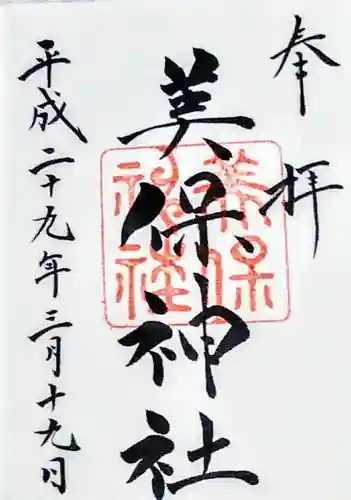 奉拝
美保神社
美保
神社
平成二十九年三月十九日